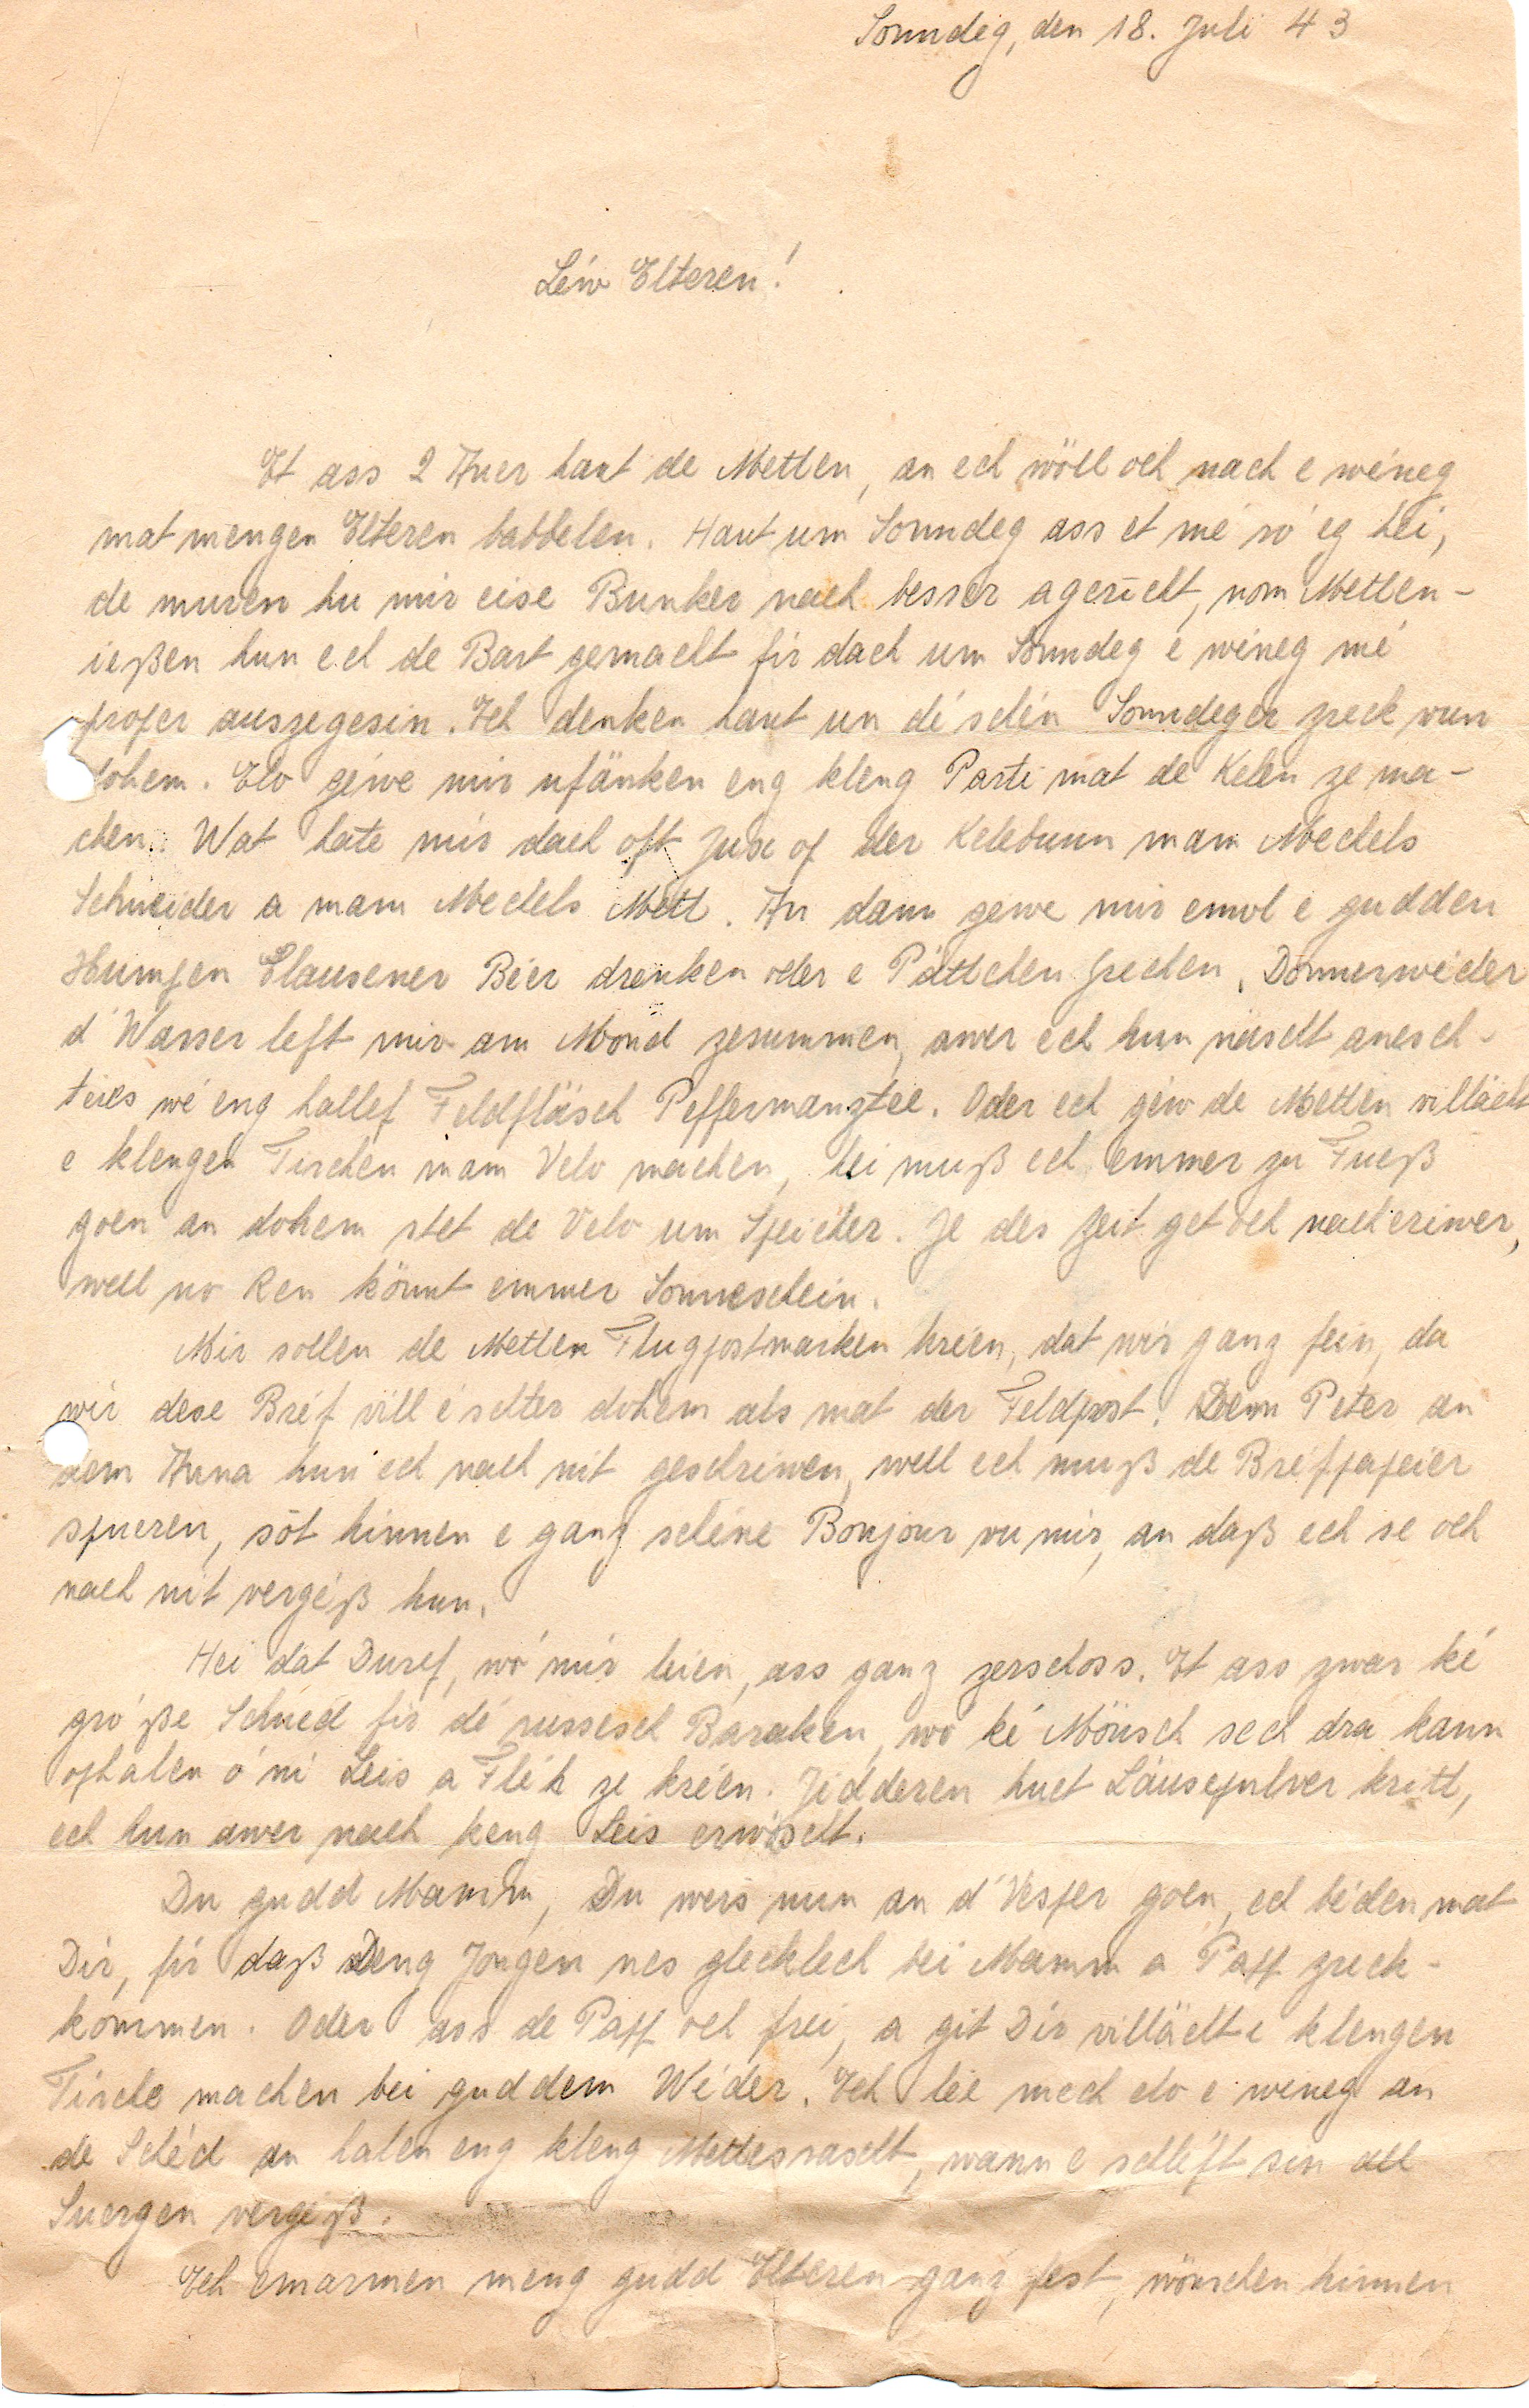 Sonndeg, den 18. Juli 43
Léiw Elteren!
Et ass 2 Auer haut de Metten, an ech wöll och nach e wéneg
mat mengen Elteren babbelen. Haut um Sonndeg ass et mé ró'eg hei,
de muren hu mir eise Bunker nach besser agericht, vom Metten-
ießen hun ech de Bart gemacht fir dach um Sonndeg e wéneg mé
proper auszegesin. Ech denken haut un dé schén Sonndeger zreck vun
dohem. Elo géwe mir ufänken eng kleng Parti mat de Kelen ze ma-
chen. Wat hate mir dach oft Jux op der Kelebunn mam Mechels
Schneider a mam Mechels Mett. An dann gewe mir emol e gudden
Humpen Clausener Béier drenken oder e Pättchen Grechen, Donnerwéder
d'Wasser left mir am Mond zesummen, awer ech hun näischt anesch-
teres wé eng hallef Feldfläsch Peffermanztee. Oder ech géw de Metten villächt
e klengen Tirchen mam Velo machen, hei muß ech emmer zu Fueß
goen an dohem stet de Velo um Speicher. Je des Zeit get och nach eriwer,
well no Ren könnt emmer Sonneschein.
Mir sollen de Metten Flugpostmarken kréien, dat wir ganz fein, da
wir dese Bréf vill é'schter dohem als mat der Feldpost. Dem Peter an
dem Anna hun ech nach nit geschriwen, well ech muß de Bréfpapeier
spueren, sot hinnen e ganz schéine Bonjour vu mir, an daß ech se och
nach nit vergéß hun.
Hei dat Duref, wó mir leien, ass ganz zerschoss. Et ass zwar ké
gró'ße Schued fir dé russesch Baraken, wo ké Mönsch sech dra kann
ophalen ó'ni Leis a Fléh ze kréen. Jidderen huet Läusepulver kritt,
ech hun awer nach keng Leis erwöscht.
Du gudd Mamm, Du wers nun an d'Vesper goen, ech béden mat
Dir, fir daß Deng Jongen nes glecklech bei Mamm a Papp zreck-
kommen. Oder ass de Papp och frei, a git Dir villächt e klengen
Tirche machen bei guddem Wéder. Ech lée mech elo e wéneg an
de Schéd an halen eng kleng Mettesrascht, wann e schléft sin all
Suergen vergéß.
Ech emarmen meng gudd Elteren ganz fest, wönschen hinnen